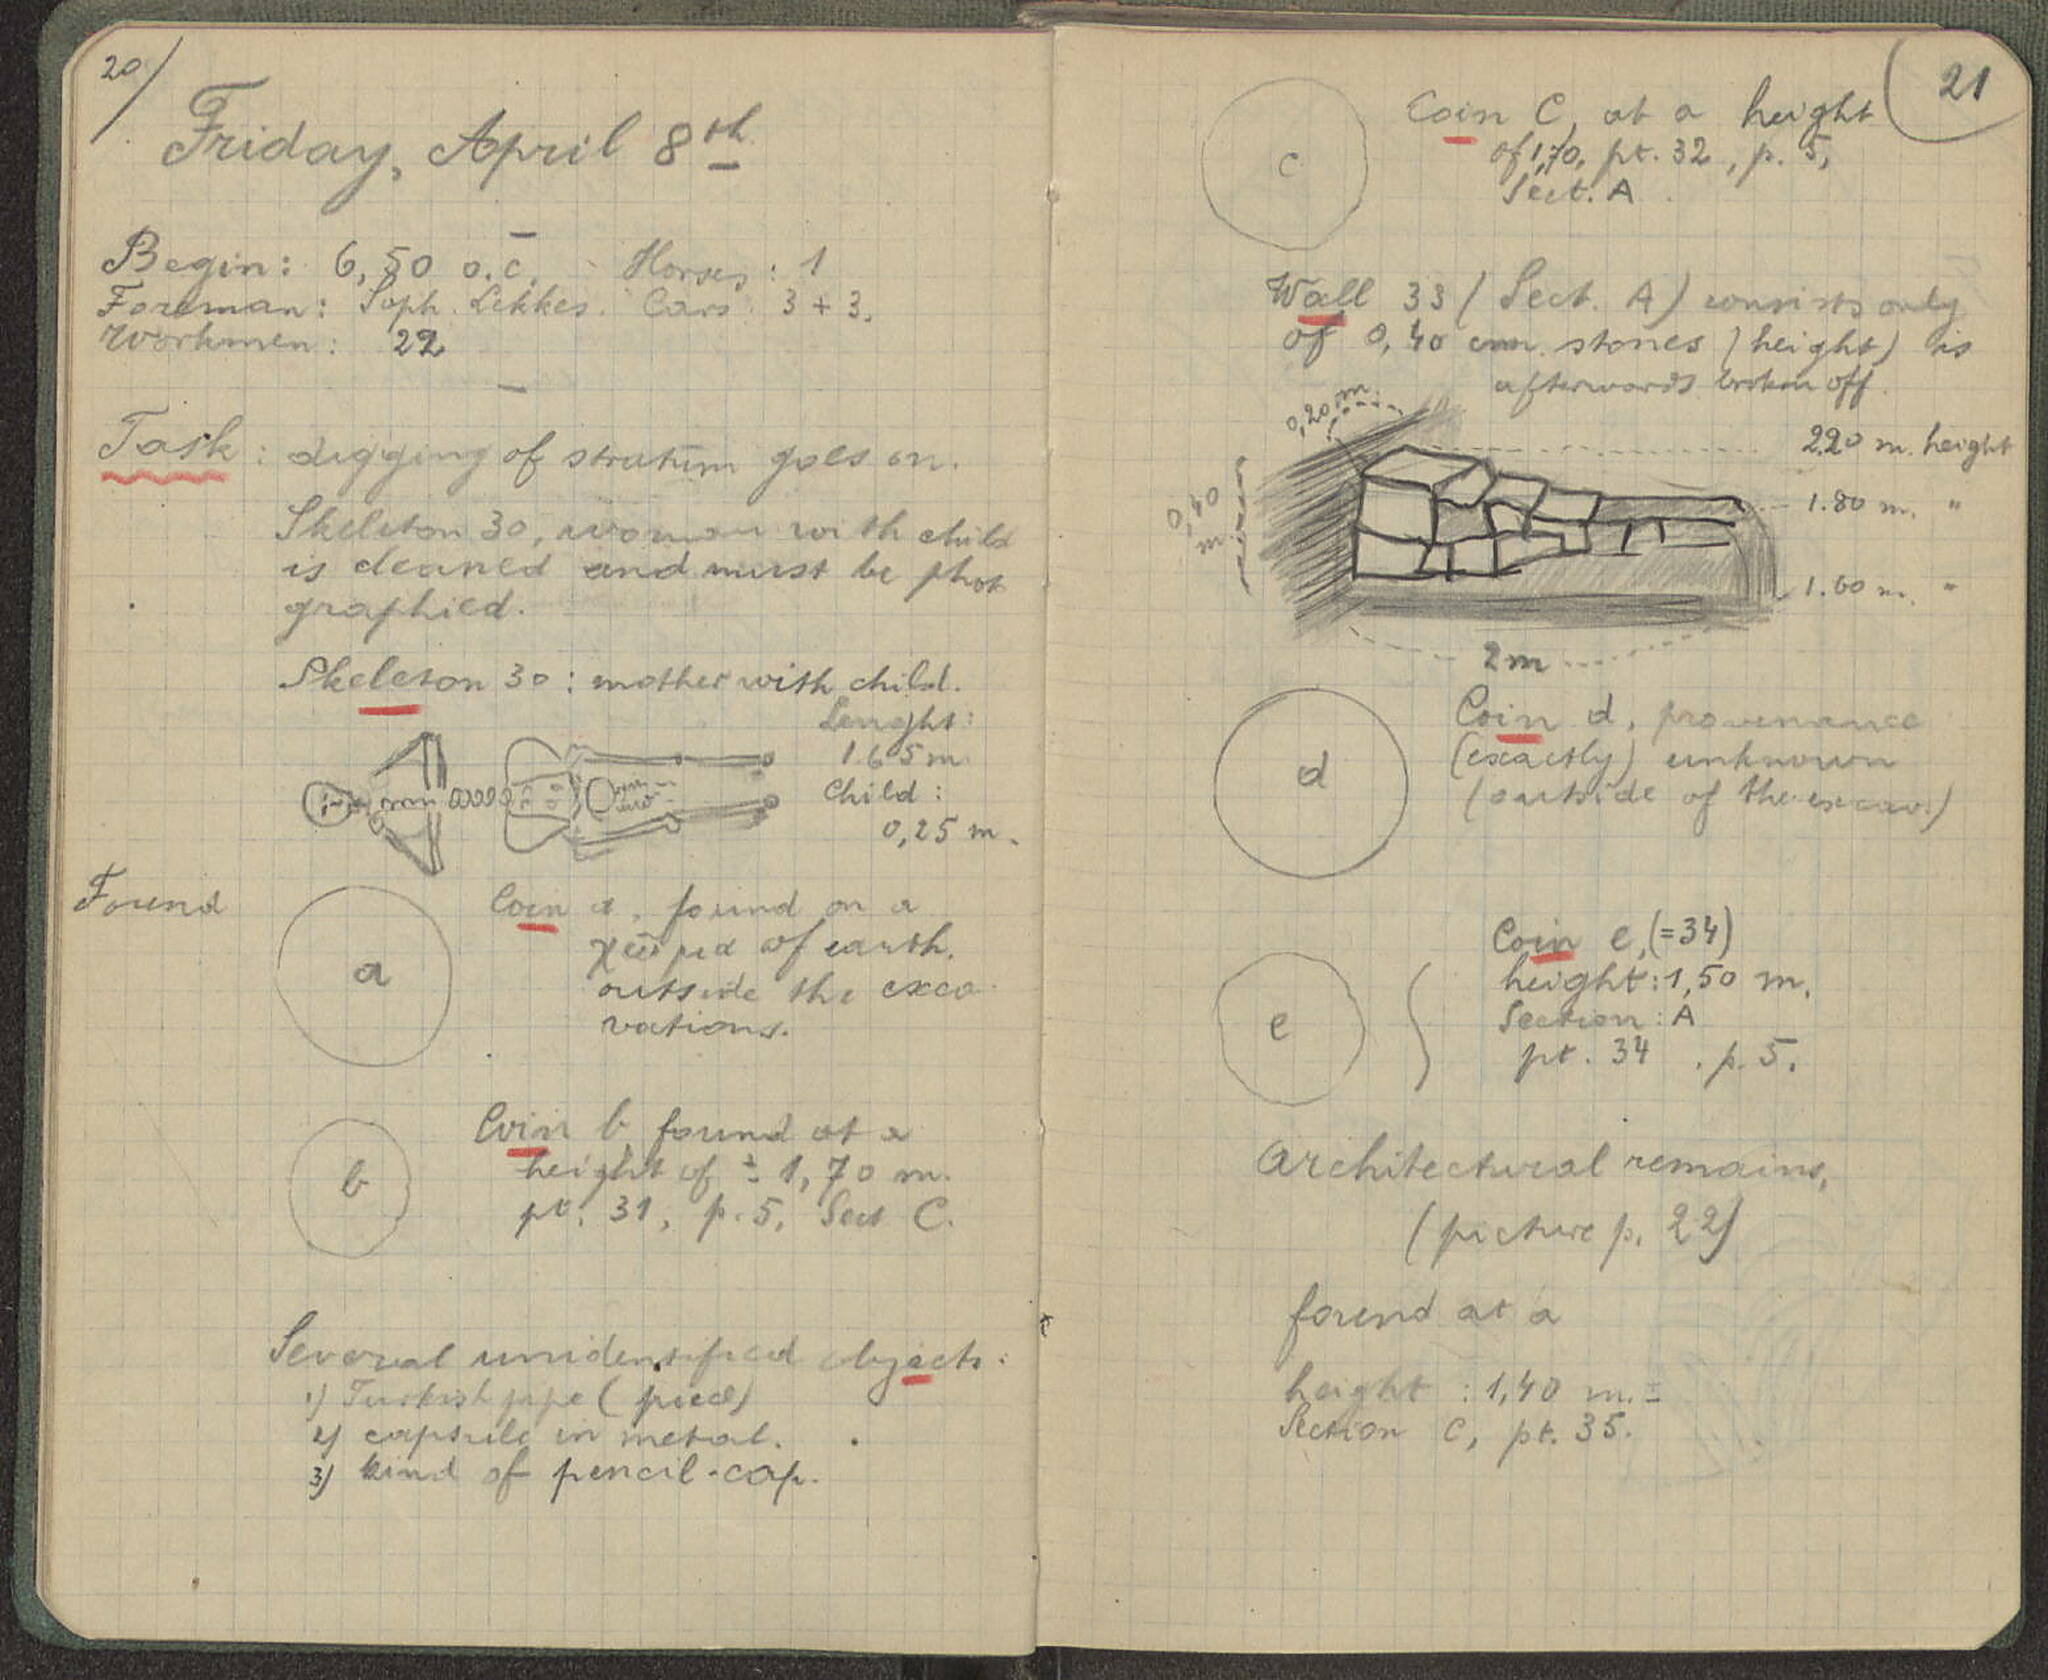 20/
Friday, April 8th
Begin: 6,50 o.c. Horses: 1
Foreman: Soph. Lekkes. Cars: 3 + 3.
Workmen: 22
Task: digging of stratum goes on.
Skeleton 30, woman with child
is cleaned and must be phot
graphied.
Skeleton 30: mother with child.
Lenght:
1.65 m.
Child:
0,25 m.
Found
a
Coin a, found on a
of earth,
outside the exca-
vations.
b
Coin b, found at a
height of ± 1,70 m.
pt. 31, p. 5, Sect C.
Several unidentified objects:
1) Turkish pipe (piece)
2) capsule in metal.
3) kind of pencil-cap.
21
c
Coin C, at a height
of 1,70, pt. 32, p. 5,
Sect. A
Wall 33 (Sect. A) consists only
of 0,40 cm. stones (height) is
afterwards broken off.
0,20 m.
2.20 m. height
0,40 m.
1.80 m. "
1.60 m. "
2 m
d
Coin d, provenance
(exactly) unknown
(outside of the excav.)
e
Coin e, (=34)
height: 1,50 m.
Section: A
pt. 34, p. 5.
Architectural remains,
(picture p. 22)
found at a
height: 1,40 m. ±
Section C, pt. 35.